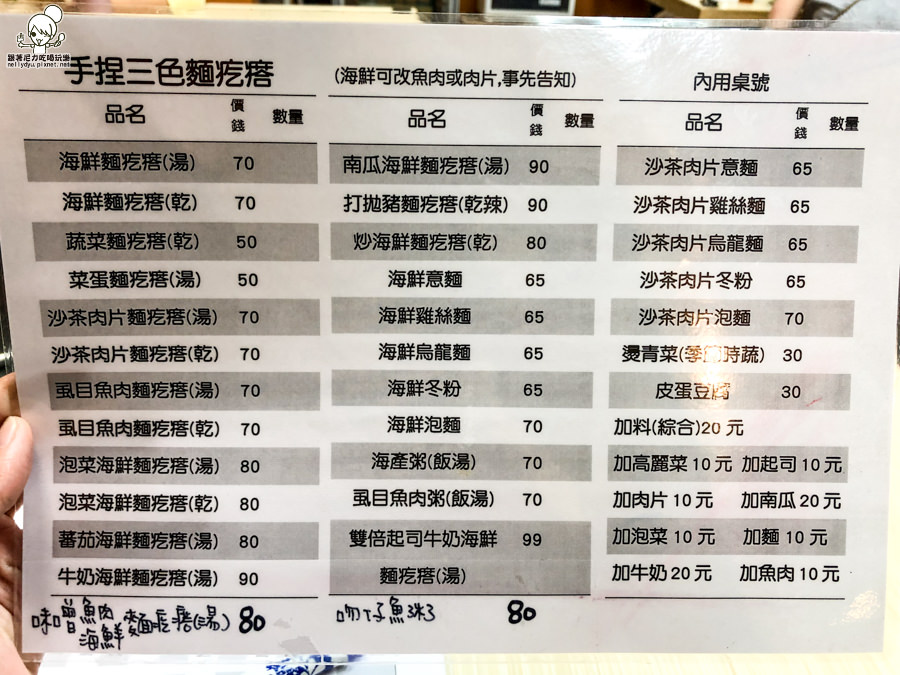 跟著尼力吃喝玩樂
nellydyu.pixnet.net
手捏三色麵疙瘩
品名 價錢 數量
海鮮麵疙瘩(湯) 70
海鮮麵疙瘩(乾) 70
蔬菜麵疙瘩(乾) 50
菜蛋麵疙瘩(湯) 50
沙茶肉片麵疙瘩(湯) 70
沙茶肉片麵疙瘩(乾) 70
虱目魚肉麵疙瘩(湯) 70
虱目魚肉麵疙瘩(乾) 70
泡菜海鮮麵疙瘩(湯) 80
泡菜海鮮麵疙瘩(乾) 80
蕃茄海鮮麵疙瘩(湯) 80
牛奶海鮮麵疙瘩(湯) 90
味噌魚肉
海鮮麵疙瘩(湯) 80
(海鮮可改魚肉或肉片,事先告知)
品名 價錢 數量
南瓜海鮮麵疙瘩(湯) 90
打拋豬麵疙瘩(乾辣) 90
炒海鮮麵疙瘩(乾) 80
海鮮意麵 65
海鮮雞絲麵 65
海鮮烏龍麵 65
海鮮冬粉 65
海鮮泡麵 70
海產粥(飯湯) 70
虱目魚肉粥(飯湯) 70
雙倍起司牛奶海鮮 99
麵疙瘩(湯)
吻仔魚粥 80
內用桌號
品名 價錢 數量
沙茶肉片意麵 65
沙茶肉片雞絲麵 65
沙茶肉片烏龍麵 65
沙茶肉片冬粉 65
沙茶肉片泡麵 70
燙青菜(季節時蔬) 30
皮蛋豆腐 30
加料(綜合)20 元
加高麗菜 10 元 加起司 10 元
加肉片 10 元 加南瓜 20 元
加泡菜 10 元 加麵 10 元
加牛奶 20 元 加魚肉 10 元